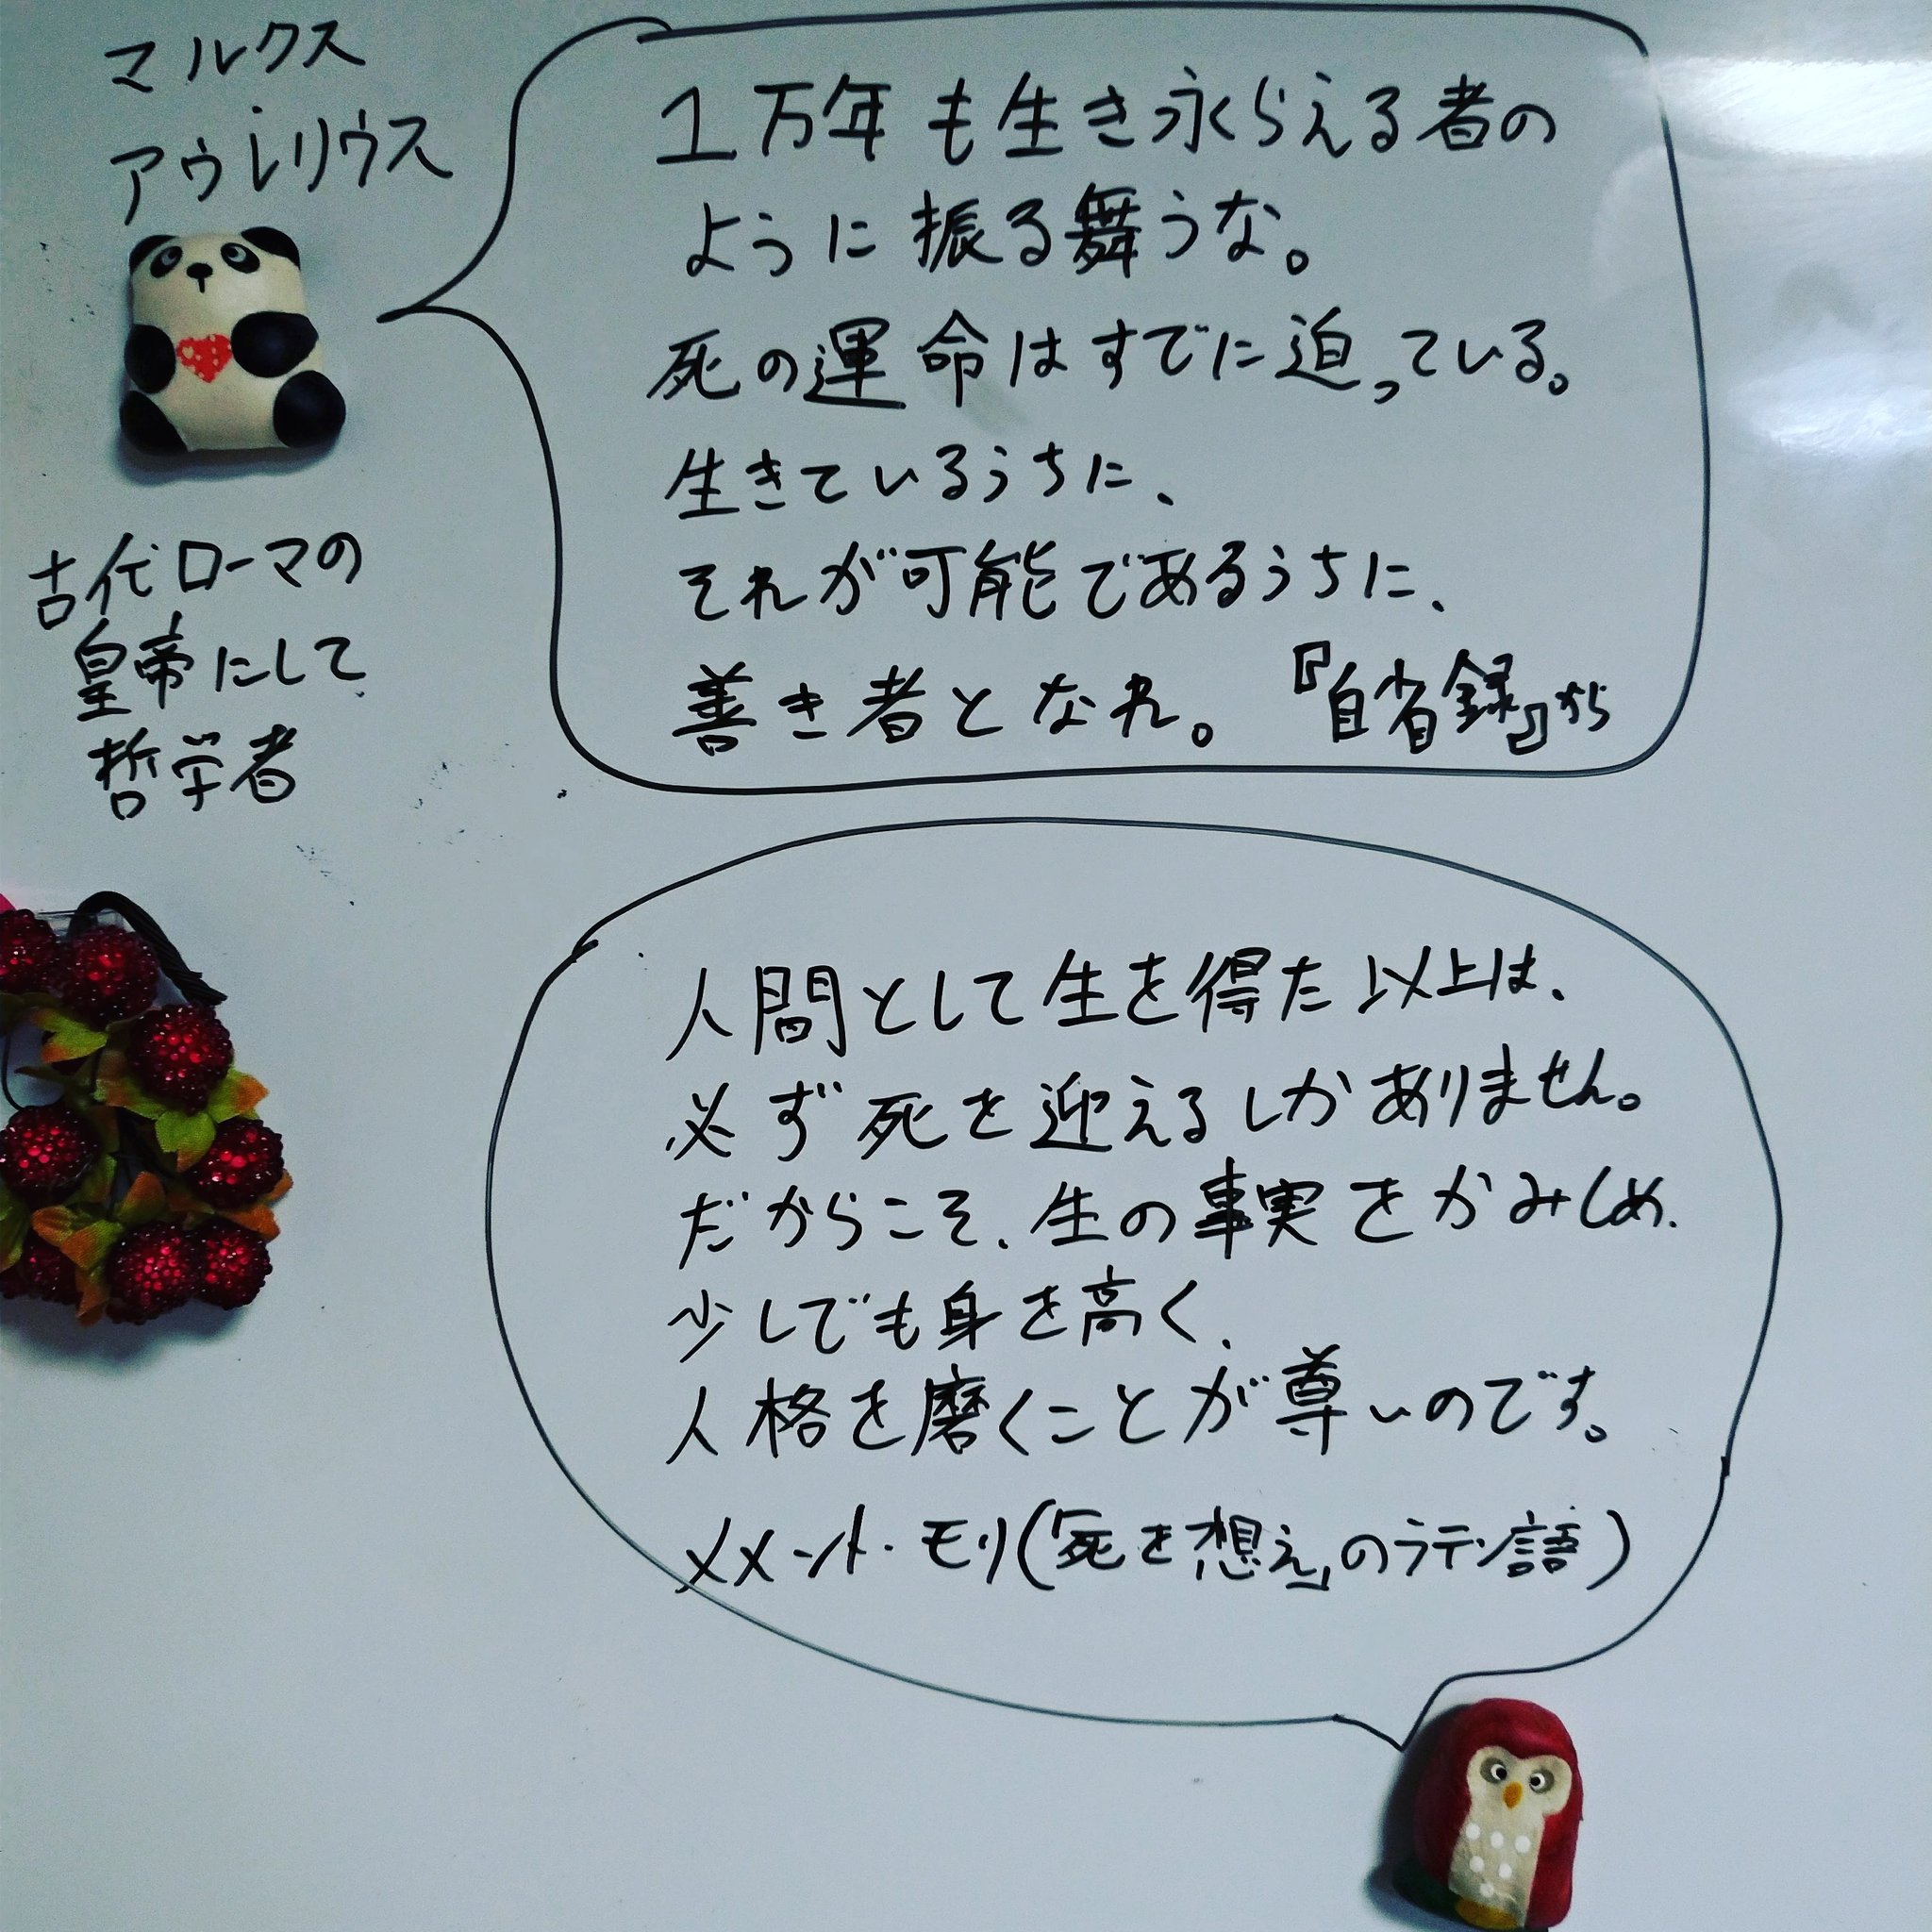 マルクス
アウレリウス
古代ローマの
皇帝にして
哲学者
1万年も生き永らえる者の
ように振る舞うな。
死の運命はすでに迫っている。
生きているうちに、
それが可能であるうちに、
善き者となれ。 『自省録』から
人間として生を得た以上は、
必ず死を迎えるしかありません。
だからこそ、生の事実をかみしめ、
少しでも身を高く、
人格を磨くことが尊いのです。
メメント・モリ(「死を想え」のラテン語)